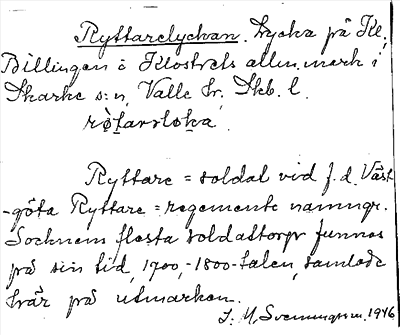 Ryttarelyckan. Lycka på Kl.
Billingen å Klostrets allm. mark i
Skarke s:n, Valle hr. Skb. l.
Ryttare = soldat vid f. d. Väst-
-göta Ryttare = regemente namngr.
Socknens flesta soldattorp funnos
på sin tid, 1700,-1800-talen, samlade
här på utmarken.
S. M, Svenningsson. 1946